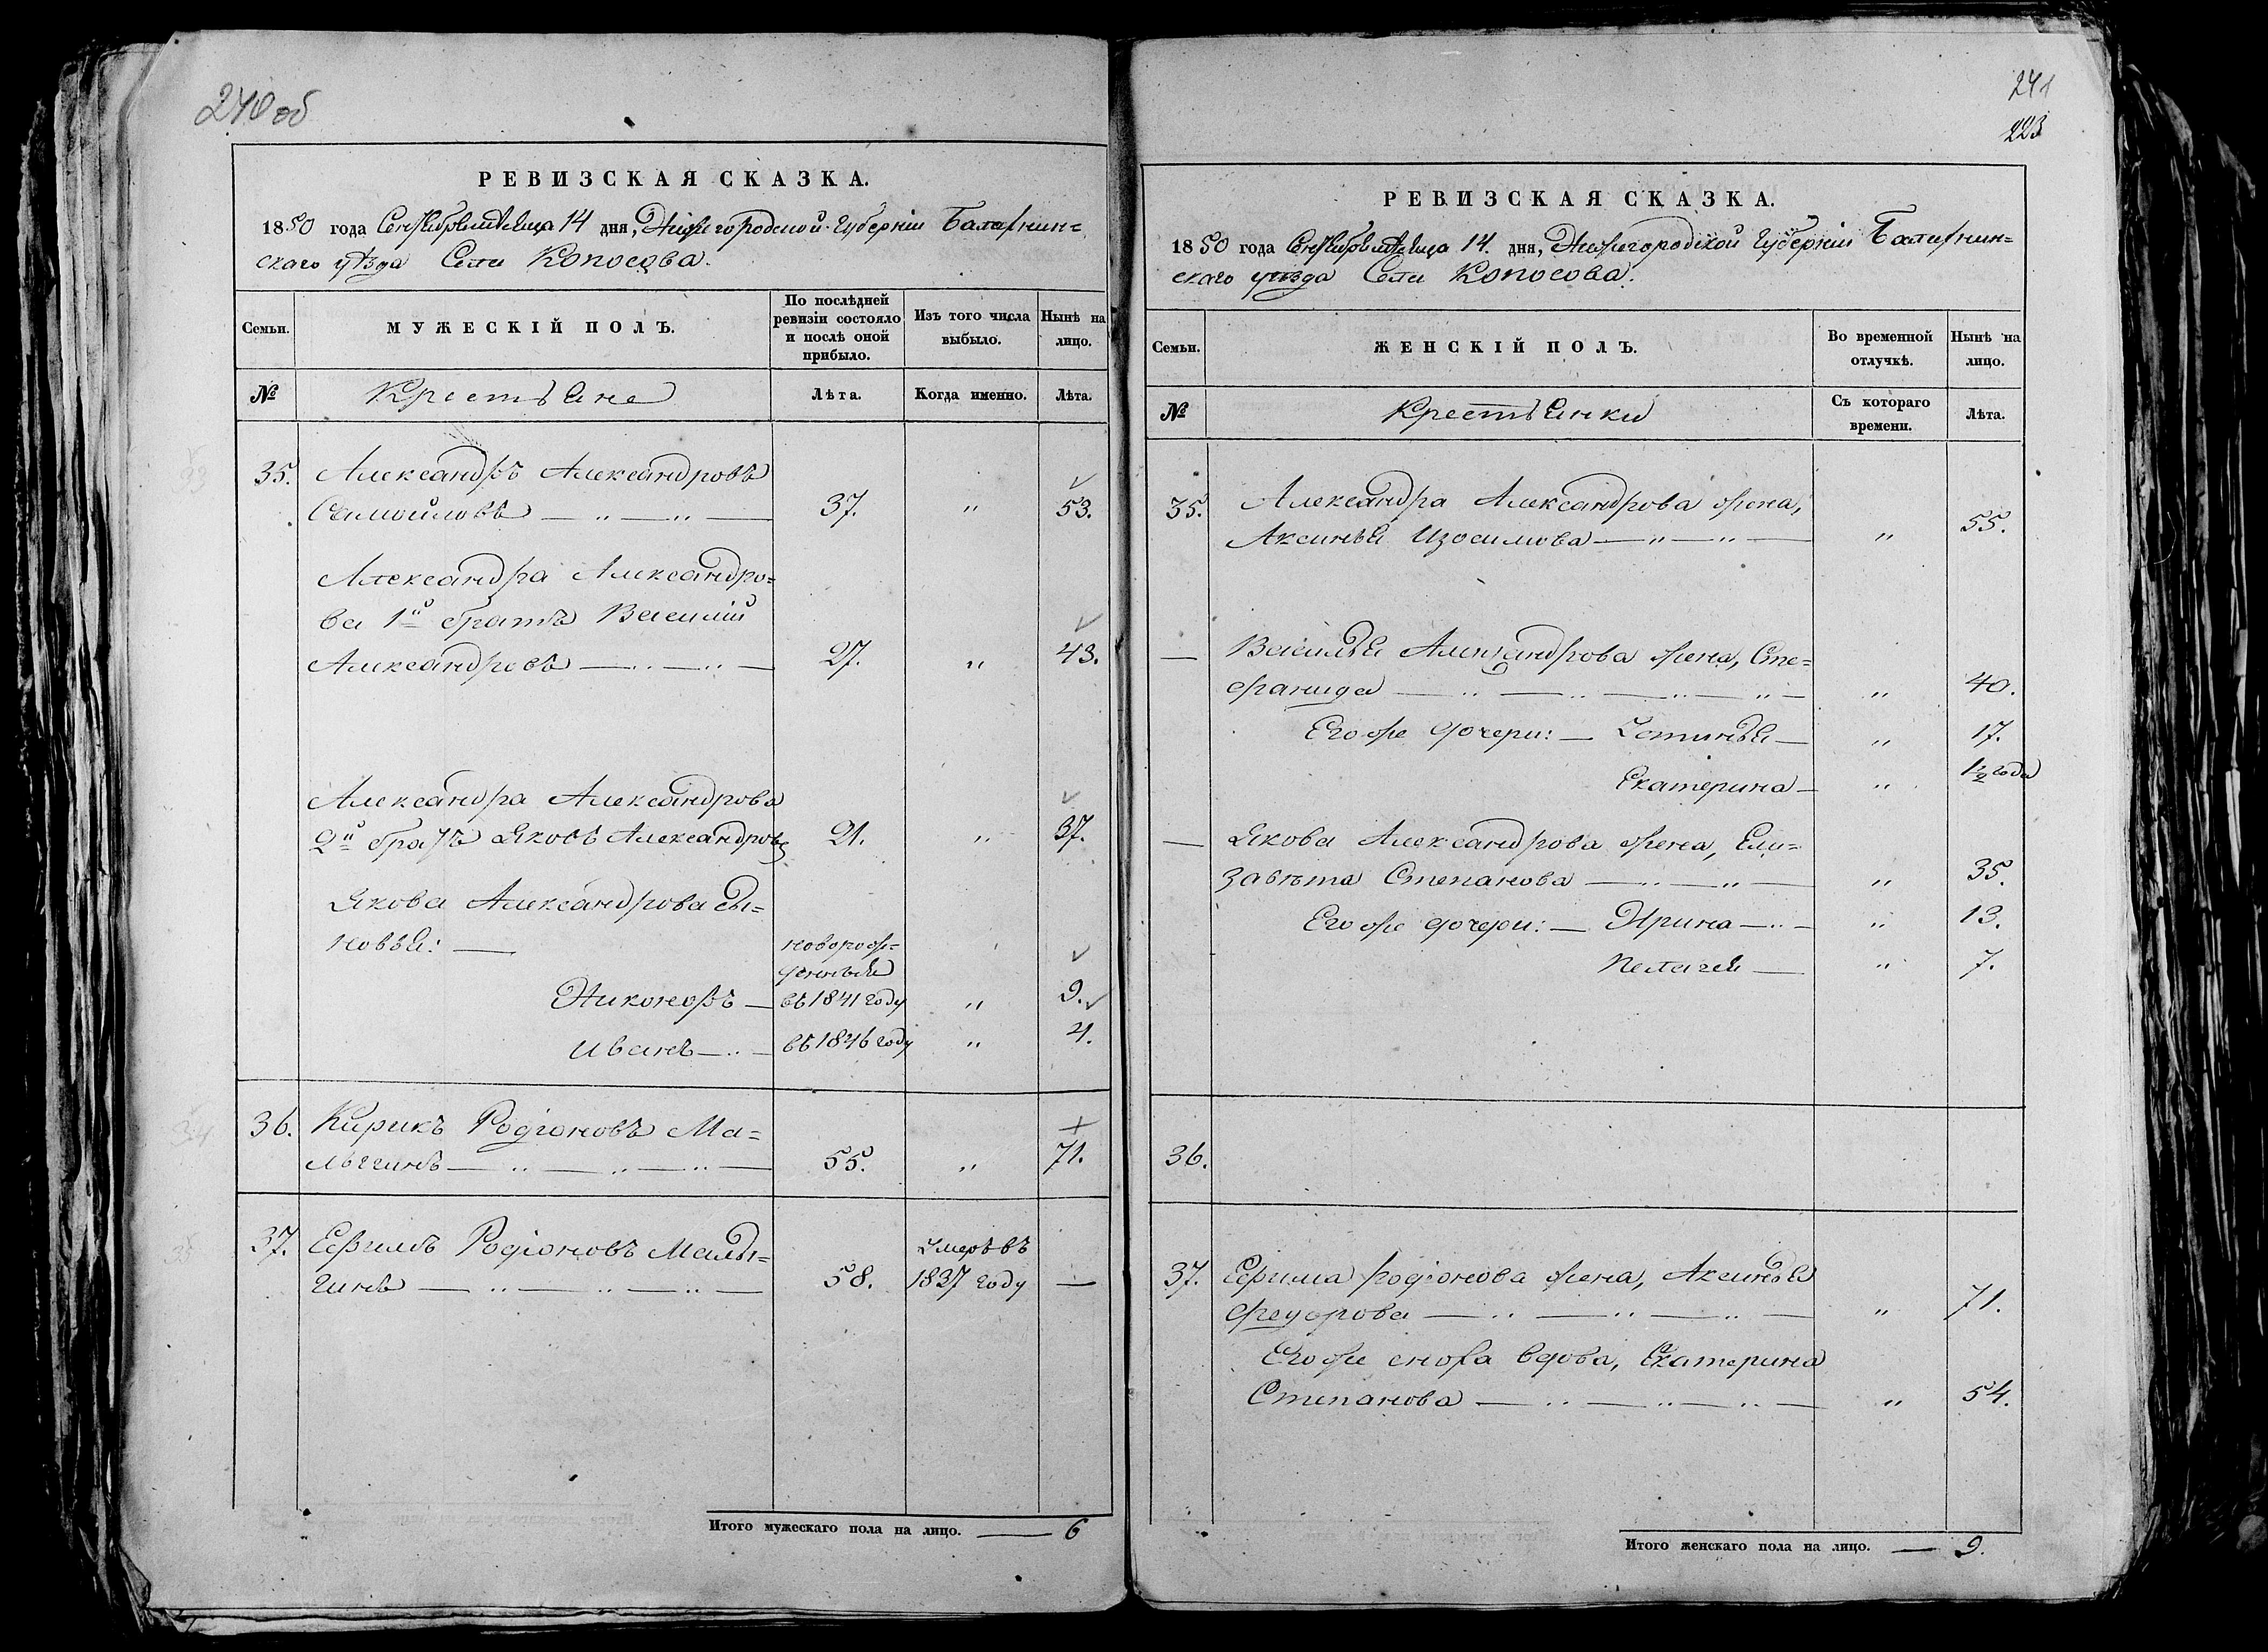 240 об
РЕВИЗСКАЯ СКАЗКА.
1850 года Сентября месяца 14 дня, Нижегородской губернiи Балахнин=
скаго уѣзда Села Копосова.
Семьи.
МУЖЕСКIЙ ПОЛЪ.
По послѣдней ревизiи состояло и послѣ оной прибыло.
Изъ того числа выбыло.
Нынѣ на лицо.
№
Крестьяне
Лѣта.
Когда именно.
Лѣта.
35. Александръ Александровъ
Самойловъ — " — " — 37. " 53.
Александра Александро=
ва 1й братъ Василiй
Александровъ — " — " — 27. " 43.
Александра Александрова
2й братъ Яковъ Александровъ 21. " 37.
Якова Александрова сы=
новья: — новорож=
денные
Никоноръ — въ 1841 году " 9.
Иванъ — " — въ 1846 году " 4.
36. Кирикъ Родiоновъ Ма=
лыгинъ — " — " — " — 55. " 71.
37. Ефимъ Родiоновъ Малы= Умеръ въ
гинъ — " — " — " — 58. 1837 году —
Итого мужескаго пола на лицо. — 6
241
223
РЕВИЗСКАЯ СКАЗКА.
1850 года Сентября месяца 14. дня, Нижегородской губернiи Балахнин=
скаго уѣзда Села Копосова.
Семьи.
ЖЕНСКIЙ ПОЛЪ.
Во временной отлучкѣ.
Нынѣ на лицо.
№
Крестьянки
Съ котораго времени.
Лѣта.
35. Александра Александрова жена,
Аксинья Изосимова — " — " — " 55.
— Василья Александрова жена, Сте=
фанида — " — " — " — " — " 40.
Его же дочери: — Устинья — " 17.
Екатерина — " 1½ года
— Якова Александрова жена, Ели=
завѣта Степанова — " — " — " 35.
Его же дочери: — Ирина — " — " 13.
Пелагея — " 7.
36.
37. Ефима Родiонова жена, Аксинья
Федорова — " — " — " — " 71.
Его же сноха вдова, Екатерина
Степанова — " — " — " — " 54.
Итого женскаго пола на лицо. — 9.